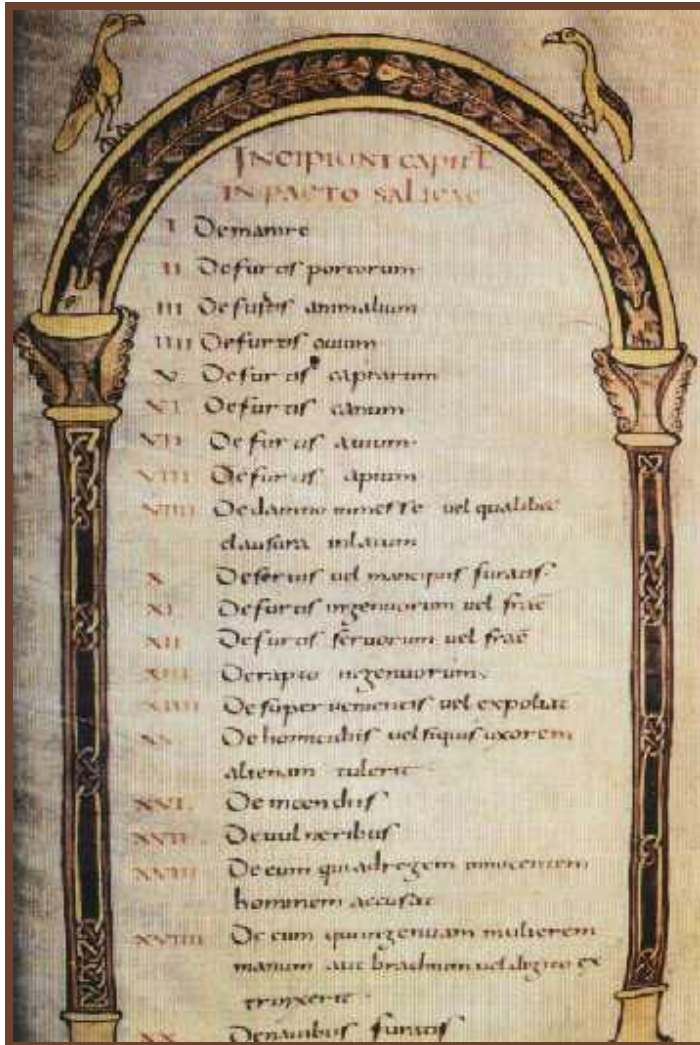 INCIPIUNT CAPITƚ
IN PACTO SALICAE
I De mannire
II De furtis porcorum
III De furtis animalium
IIII De furtis ouium
V De furtis caprarum
VI De furtis canum
VII De furtis auium
VIII De furtis apium
VIIII De damno in messe uel qualibe
clausura inlatum
X De seruis uel mancipiis furatis
XI De furtis ingenuorum uel fracē
XII De furtis seruorum uel fracē
XIII De rapto ingenuorum
XIIII De super uenientis uel expoliat
XV De homicidiis uel siquis uxorem
alienam tulerit
XVI De incendiis
XVII De uulneribus
XVIII De eum qui ad regem innocentem
hominem accusat
XVIIII De eum qui ingenuam mulierem
manum aut brachium uel digito ex
trinxerit
XX De nauibus furatis